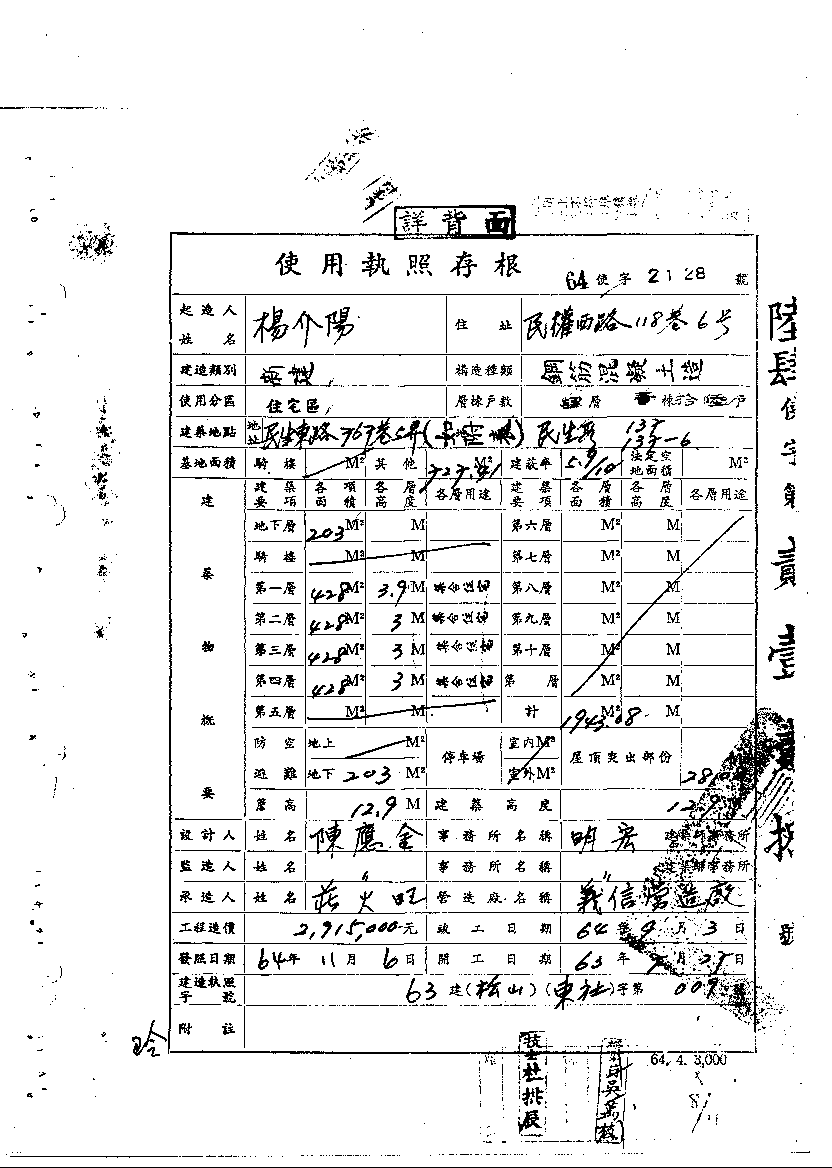 詳背面
使用執照存根
64使字2128號
起造人姓名 楊介陽 住址 民權西路118巷6号
建造類別 新建 構造種類 鋼筋混凝土造
使用分區 住宅區 層棟戶數 層 棟拾 戶
建築地點 地址 民生東路767巷 民生段 135 135-6
基地面積 騎樓 M² 其他 727.41 M² 建蔽率 5.9/10 法定空地面積 M²
建築物概要 建築要項 各項面積 各層高度 各層用途 建築要項 各層面積 各層高度 各層用途
地下層 203 M² M 第六層 M² M
騎樓 M² M 第七層 M² M
第一層 428 M² 3.9 M 集合住宅 第八層 M² M
第二層 428 M² 3 M 集合住宅 第九層 M² M
第三層 428 M² 3 M 集合住宅 第十層 M² M
第四層 428 M² 3 M 集合住宅 第 層 M² M
第五層 M² M 計 1943.08 M² M
防空避難 地上 M² 停車場 室內M² 屋頂突出部份
地下 203 M² 室外M² 28.0
簷高 12.9 M 建築高度 12.9
設計人 姓名 陳應金 事務所名稱 明宏 建築師事務所
監造人 姓名 〃 事務所名稱 〃 建築師事務所
承造人 姓名 莊火旺 營造廠名稱 義信營造廠
工程造價 2,915,000元 竣工日期 64年9月3日
發照日期 64年11月6日 開工日期 63年 月 日
建造執照字號 63建(松山)(東社)字第009號
附註
64. 4. 3,000
技士杜拱辰
陸肆使字第貳壹貳捌號